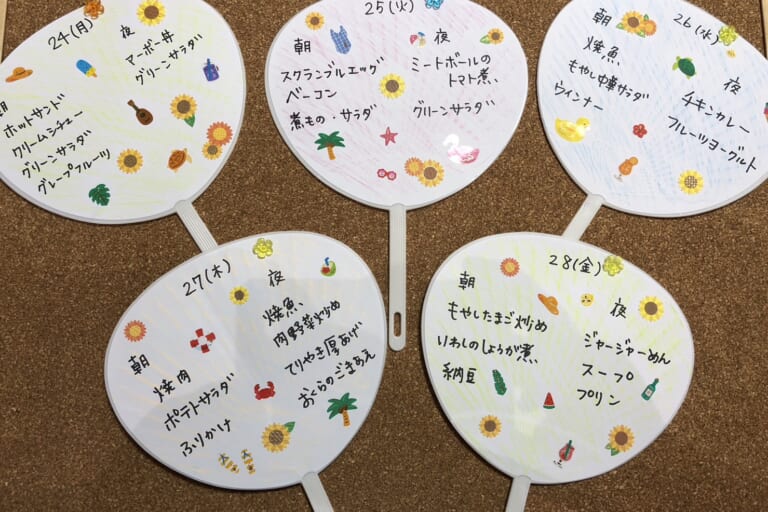 24(月)
朝
ホットサンド
クリームシチュー
グリーンサラダ
グレープフルーツ
夜
マーボー丼
グリーンサラダ
25(火)
朝
スクランブルエッグ
ベーコン
煮もの・サラダ
夜
ミートボールの
トマト煮
グリーンサラダ
26(水)
朝
焼魚
もやし中華サラダ
ウインナー
夜
チキンカレー
フルーツヨーグルト
27(木)
朝
焼肉
ポテトサラダ
ふりかけ
夜
焼魚
肉野菜炒め
てりやき厚あげ
おくらのごまあえ
28(金)
朝
もやしたまご炒め
いわしのしょうが煮
納豆
夜
ジャージャーめん
スープ
プリン